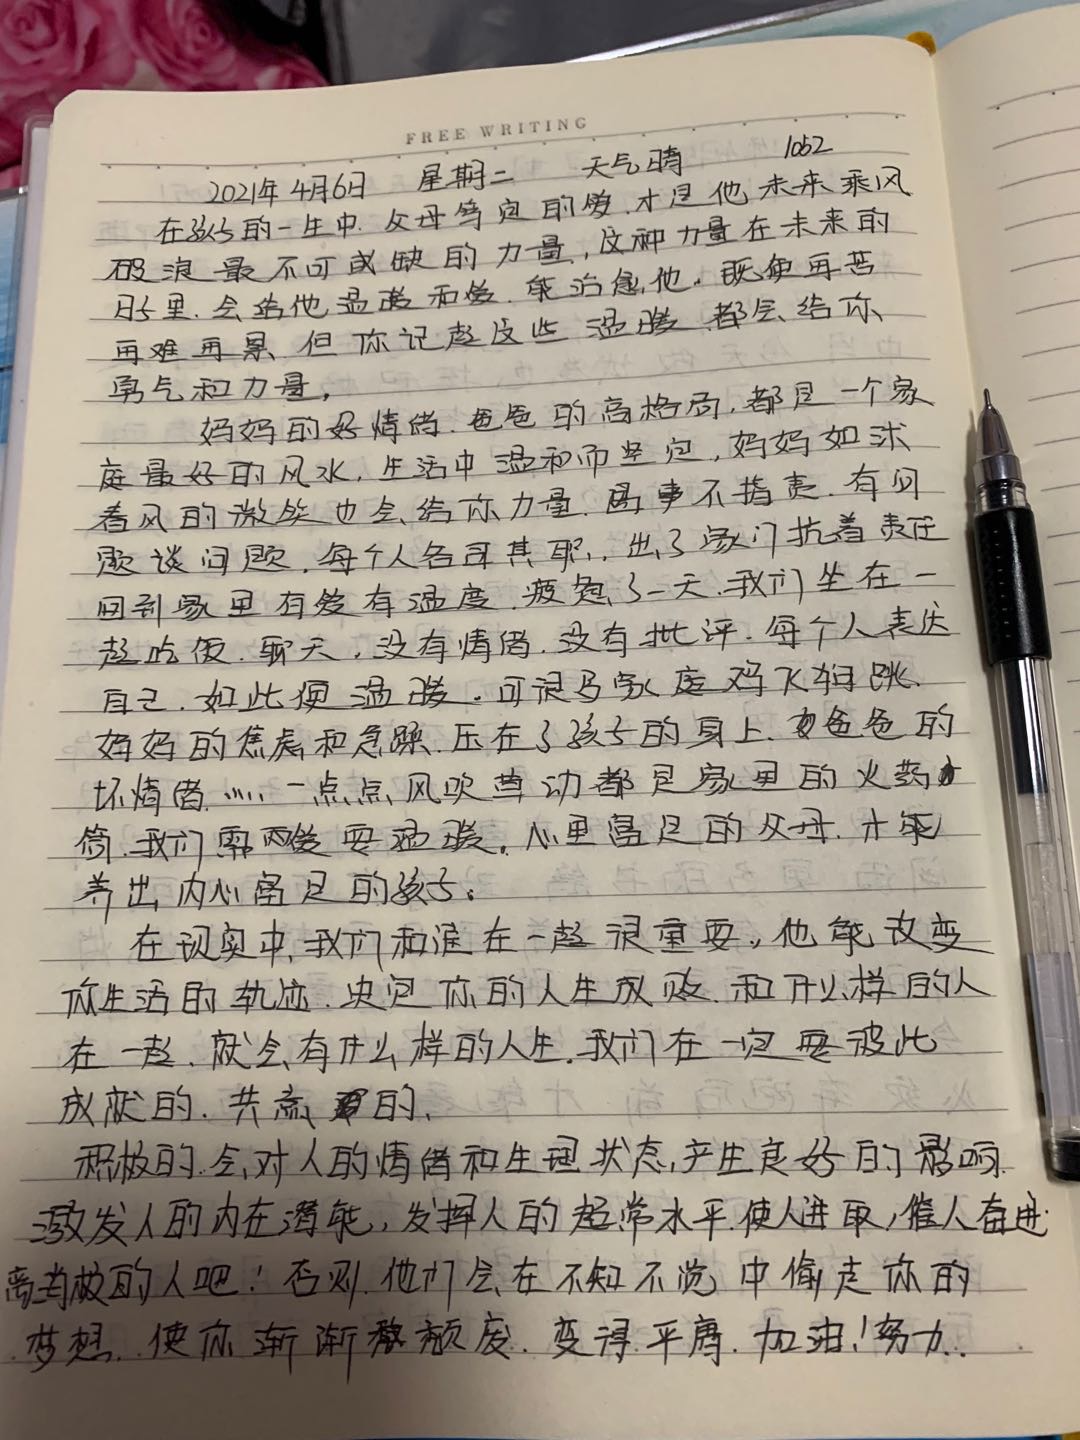 FREE WRITING
2021年4月6日 星期二 天气晴 1052
在孩子的一生中.父母笃定的爱.才是他未来乘风
破浪最不可或缺的力量,这种力量在未来的
日子里.会给他温暖和爱.能治愈他.既使再苦
再难再累.但你记起这些温暖都会给你
勇气和力量,
妈妈的好情绪.爸爸的高格局.都是一个家
庭最好的风水.生活中温和而坚定,妈妈如沐
春风的微笑也会给你力量.遇事不指责.有问
题谈问题.每个人各司其职.出了家门抗着责任
回到家里有爱有温度.疲惫了一天.我们坐在一
起吃饭.聊天.没有情绪.没有批评.每个人表达
自己.如此便温暖.可很多家庭鸡飞狗跳.
妈妈的焦虑和急躁.压在了孩子的身上.爸爸的
坏情绪.……一点点风吹草动都是家里的火药
筒.我们需要温暖.心里富足的父母.才能
养出内心富足的孩子.
在现实中,我们和谁在一起很重要.他能改变
你生活的轨迹.决定你的人生成败.和什么样的人
在一起.就会有什么样的人生.我们在一定要彼此
成就的.共赢的.
积极的.会对人的情绪和生理状态,产生良好的影响.
激发人的内在潜能,发挥人的超常水平.使人进取,催人奋进
离消极的人吧!否则.他们会在不知不觉中偷走你的
梦想.使你渐渐颓废.变得平庸.加油!努力.